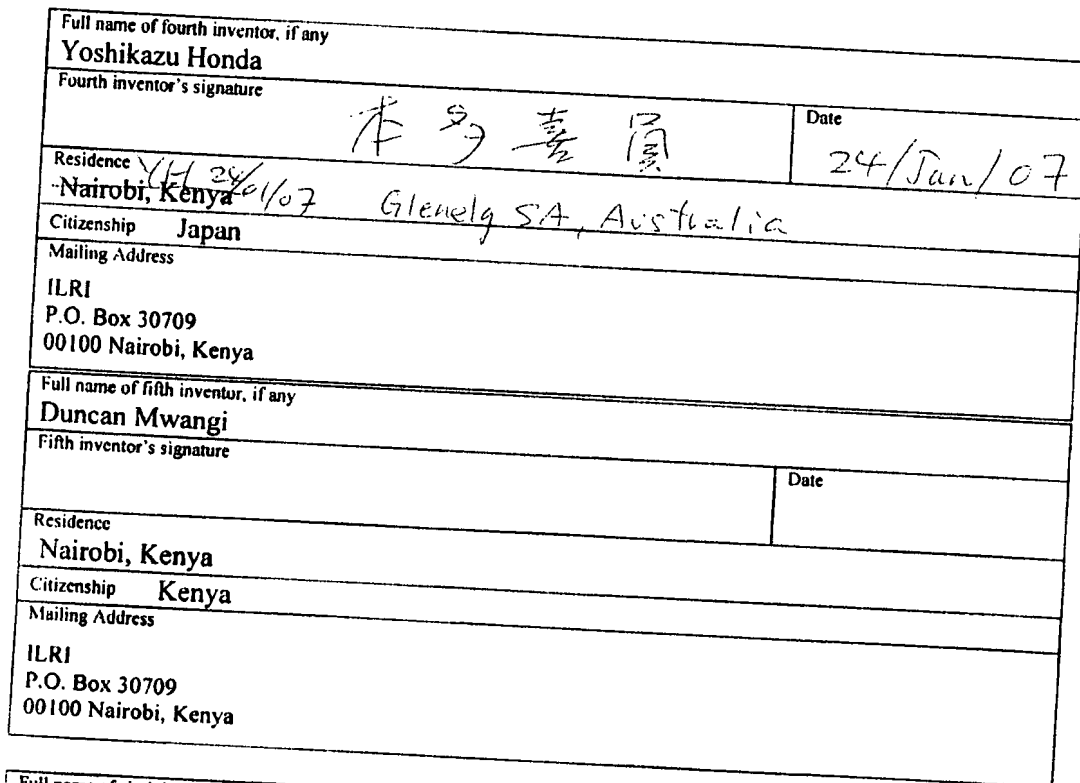 Full name of fourth inventor, if any
Yoshikazu Honda
Fourth inventor's signature
本多嘉員
Date
24/Jan/07
Residence YH 24/01/07
Nairobi, Kenya Glenelg SA, Australia
Citizenship Japan
Mailing Address
ILRI
P.O. Box 30709
00100 Nairobi, Kenya
Full name of fifth inventor, if any
Duncan Mwangi
Fifth inventor's signature
Date
Residence
Nairobi, Kenya
Citizenship Kenya
Mailing Address
ILRI
P.O. Box 30709
00100 Nairobi, Kenya